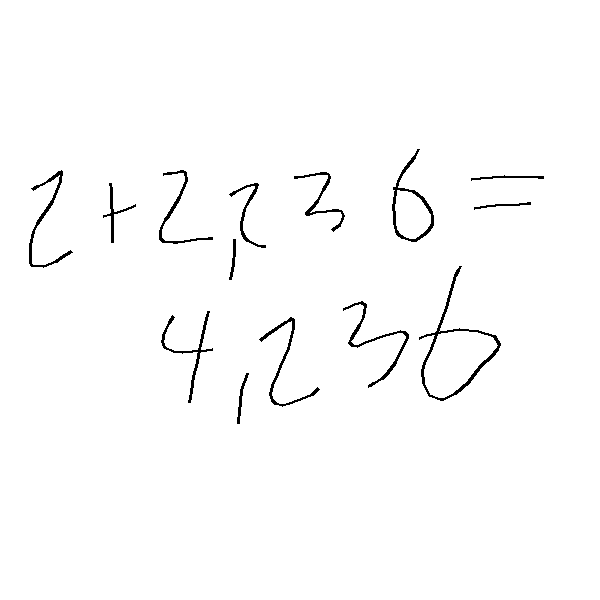 2+2,236=
4,236